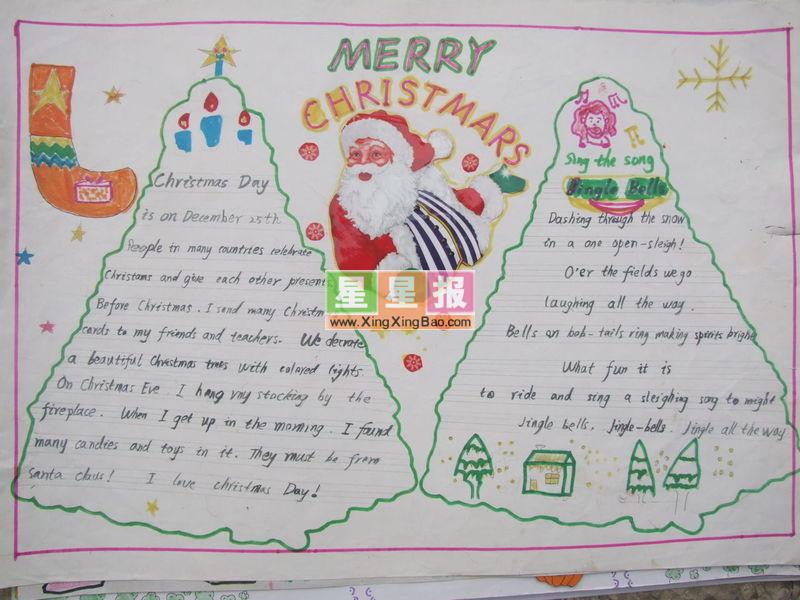 MERRY
CHRISTMARS
Christmas Day
is on December 25th.
People in many countries celebrate
Christams and give each other presents
Before Christmas. I send many Christm
cards to my friends and teachers. We decorate
a beautiful Christmas trees with colored lights
On Christmas Eve. I hang my stocking by the
fireplace. When I get up in the morning. I found
many candies and toys in it. They must be from
santa claus! I love christmas Day!
星星报
www.XingXingBao.com
Sing the song
Jingle Bells
Dashing through the snow
in a one open-sleigh!
O'er the fields we go
laughing all the way.
Bells on bob-tails ring making spirits bright
What fun it is
to ride and sing a sleighing song to might
Jingle bells. Jingle-bells. Jingle all the way